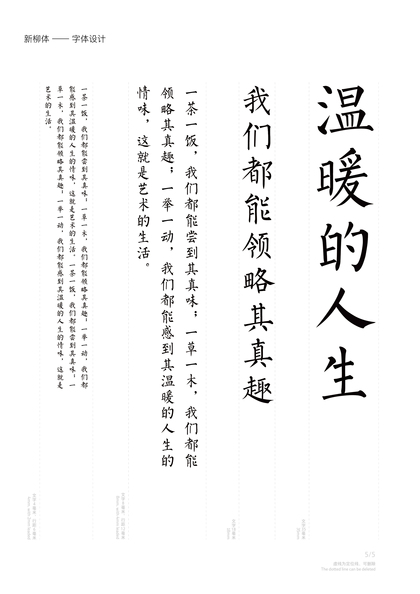 新柳体 —— 字体设计
温暖的人生
我们都能领略其真趣
一茶一饭，我们都能尝到其真味；一草一木，我们都能
领略其真趣；一举一动，我们都能感到其温暖的人生的
情味，这就是艺术的生活。
一茶一饭，我们都能尝到其真味；一草一木，我们都能领略其真趣；一举一动，我们都
能感到其温暖的人生的情味，这就是艺术的生活。一茶一饭，我们都能尝到其真味；一
草一木，我们都能领略其真趣；一举一动，我们都能感到其温暖的人生的情味，这就是
艺术的生活。
5/5